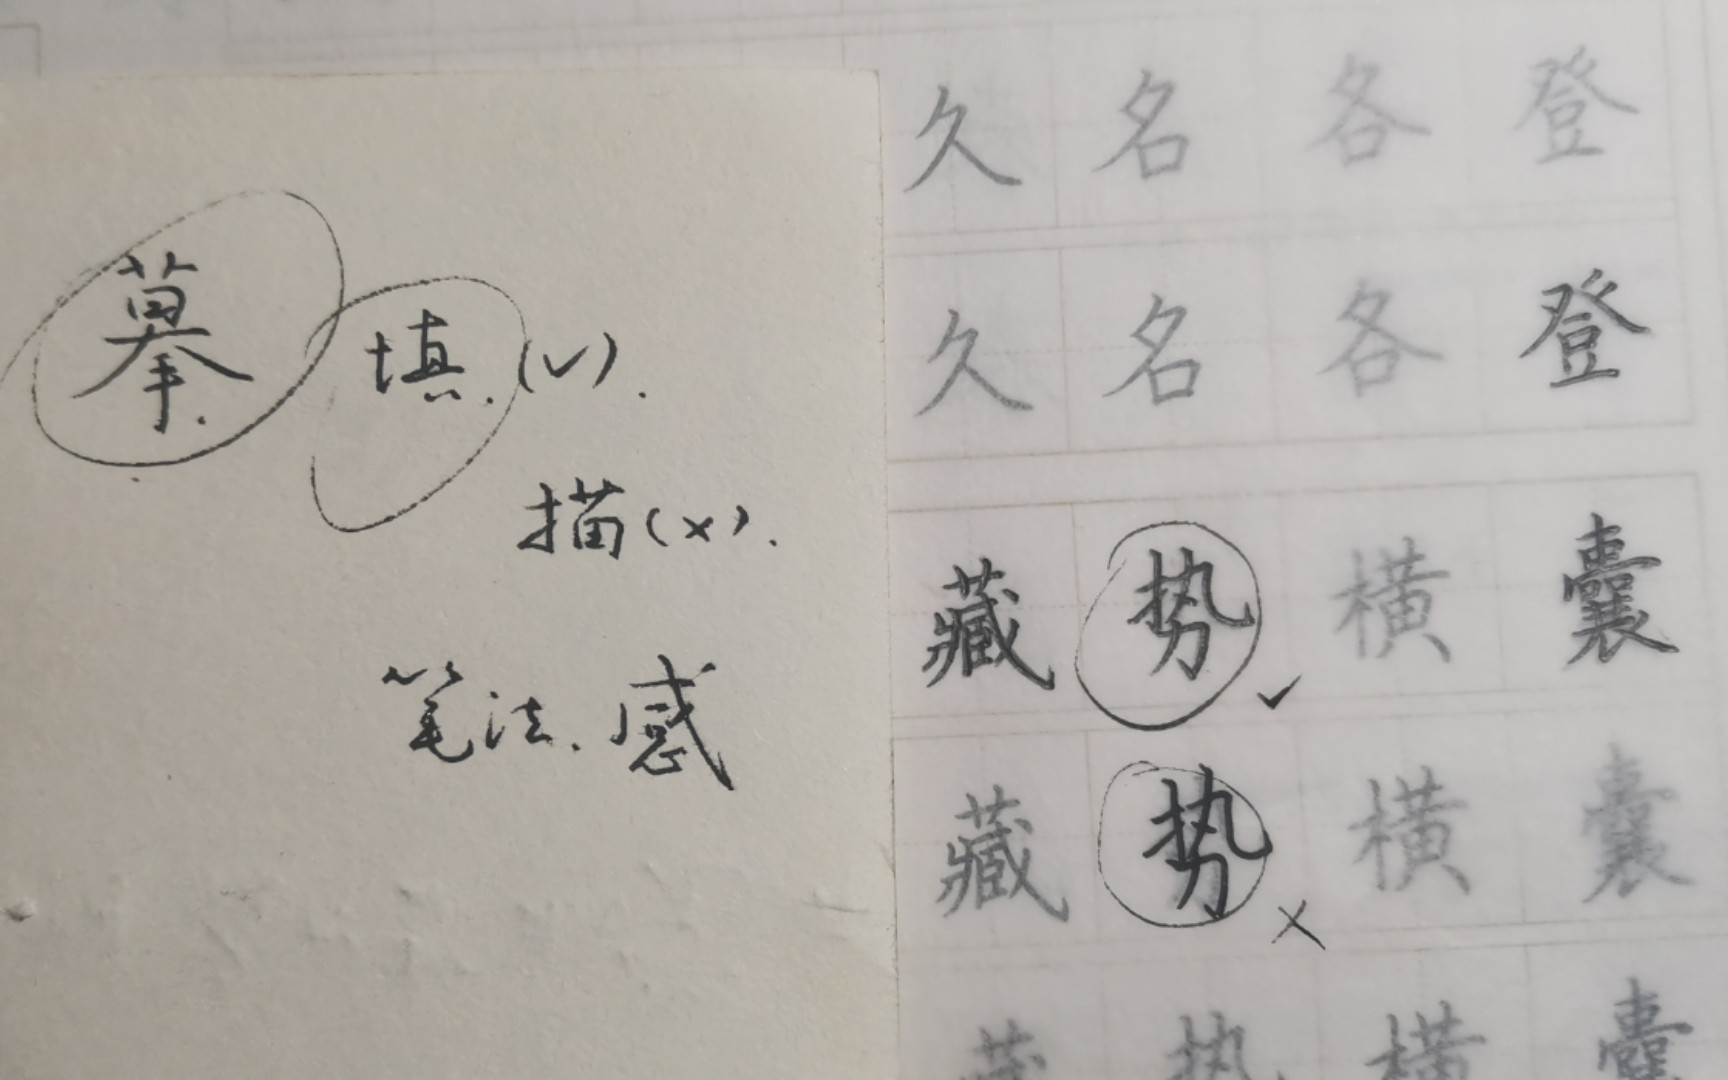 摹.
填.(√).
描(×).
笔法.感
久 名 各 登
久 名 各 登
藏 势 横 囊
✓
藏 势 横 囊
×
藏 势 横 囊